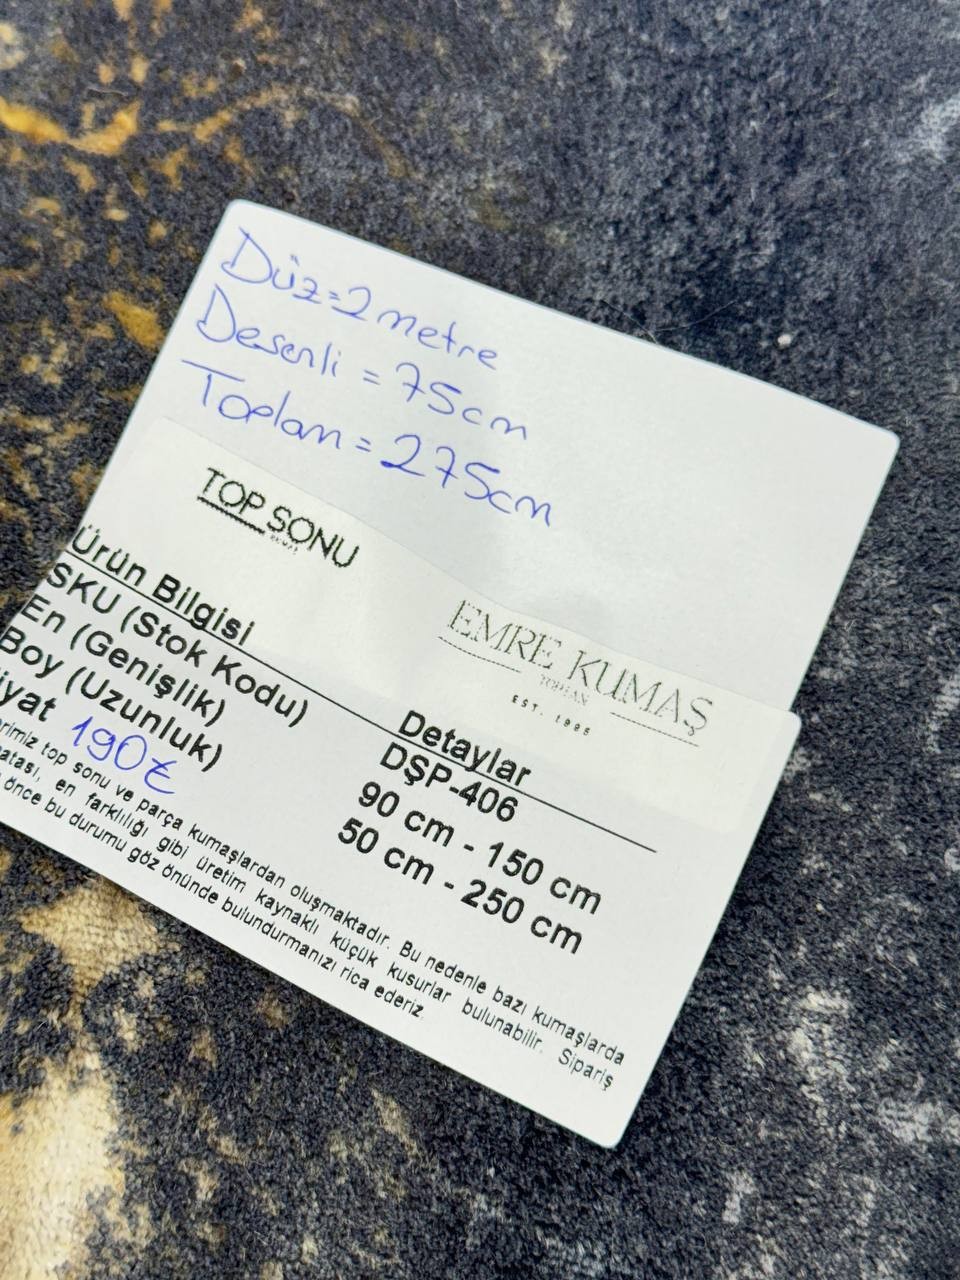 Düz=2 metre
Desenli = 75cm
Toplam = 275cm
TOP SONU
EMRE KUMAŞ
TOPTAN
EST. 1995
Ürün Bilgisi Detaylar
SKU (Stok Kodu) DŞP-406
En (Genişlik) 90 cm - 150 cm
Boy (Uzunluk) 50 cm - 250 cm
iyat 190₺
erimiz top sonu ve parça kumaşlardan oluşmaktadır. Bu nedenle bazı kumaşlarda
atası, en farklılığı gibi üretim kaynaklı küçük kusurlar bulunabilir. Sipariş
önce bu durumu göz önünde bulundurmanızı rica ederiz.